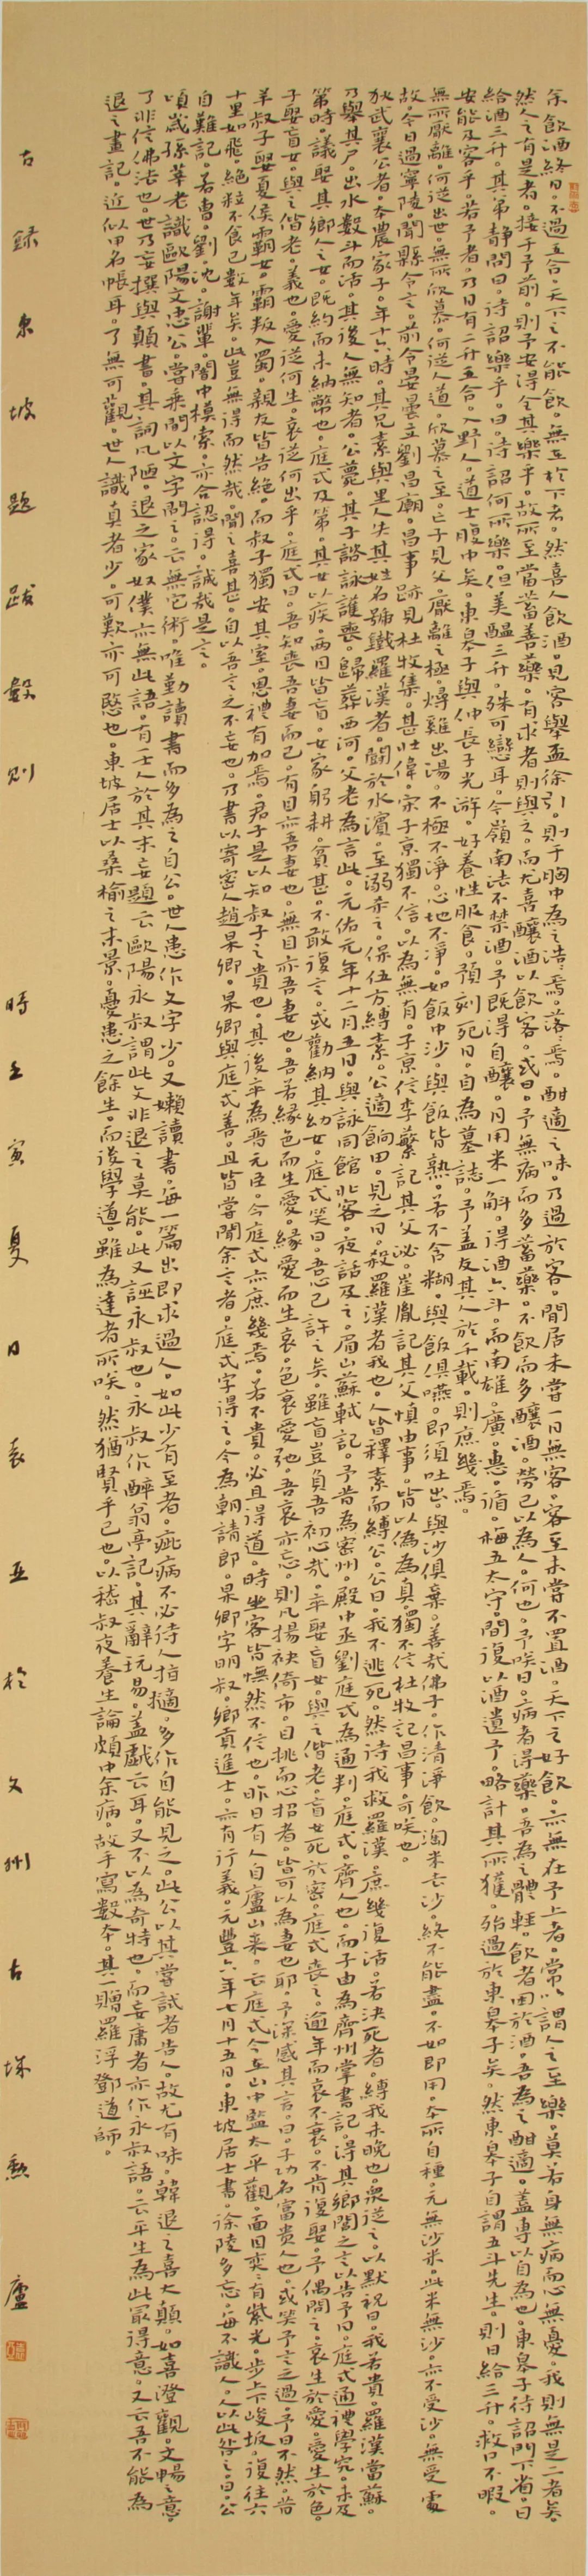 余飲酒終日。不過五合。天下之不能飲。無在於下者。然喜人飲酒。見客舉盃徐引。則予胸中為之浩浩焉。落落焉。酣適之味。乃過於客。閒居未嘗一日無客。客至未嘗不置酒。天下之好飲。亦無在予上者。常以謂人之至樂。莫若身無病而心無憂。我則無是二者矣。
然人之有是者。接于予前。則予安得全其樂乎。故所至當蓄善藥。有求者則與之。而尤喜釀酒以飲客。或曰。予無病而多蓄藥。不飲而多釀酒。勞己以為人。何也。予笑曰。病者得藥。吾為之體輕。飲者困於酒。吾為之酣適。蓋專以自為也。東皋子待詔門下省。日
給酒三升。其弟靜問曰。待詔樂乎。曰。待詔何所樂。但美醞三升。殊可戀耳。今嶺南法不禁酒。予既得自釀。月用米一斛。得酒六斗。而南雄。廣。惠。循。梅五太守。間復以酒遺予。略計其所獲。殆過於東皋子矣。然東皋子自謂五斗先生。則日給三升。救口不暇。
安能及客乎。若予者。乃日有二升五合。入野人。道士腹中矣。東皋子與仲長子光游。好養性服食。預刻死日。自為墓誌。予蓋友其人於千載。則庶幾焉。
無所厭離。何從出世。無所欣慕。何從入道。欣慕之至。亡子見父。厭離之極。燖雞出湯。不極不淨。心地不淨。如飯中沙。與飯皆熟。若不含糊。與飯俱嚥。即須吐出。與沙俱棄。善哉佛子。作清淨飲。淘米去沙。終不能盡。不如即用。本所自種。元無沙米。此米無沙。亦不受沙。無受處
故。今日過寧陵。聞縣令言。前令晏曇立劉昌廟。昌事跡見杜牧集。甚壯偉。宋子京獨不信。以為無有。子京信李蘩記其父泌。崔胤記其父慎由事。皆以偽為真。獨不信杜牧記昌事。可笑也。
狄武襄公者。本農家子。年十六時。其兄素與里人失其姓名號鐵羅漢者。鬭於水濱。至溺殺之。保伍方縛素。公適餉田。見之曰。殺羅漢者我也。人皆釋素而縛公。公曰。我不逃死。然待我救羅漢。庶幾復活。若決死者。縛我未晚也。眾從之。以默祝曰。我若貴。羅漢當蘇。
乃舉其尸。出水數斗而活。其後人無知者。公薨。其子諮詠護喪。歸葬西河。父老為言此。元祐元年十二月五日。與詠同館北客。夜話及之。眉山蘇軾記。予昔為密州。殿中丞劉庭式為通判。庭式。齊人也。而子由為齊州掌書記。得其鄉閭之言以告予曰。庭式通禮學究。未及
第時。議娶其鄉人之女。既約而未納幣也。庭式及第。其女以疾。兩目皆盲。女家躬耕。貧甚。不敢復言。或勸納其幼女。庭式笑曰。吾心已許之矣。雖盲豈負吾初心哉。卒娶盲女。與之偕老。盲女死於密。庭式喪之。逾年而哀不衰。不肯復娶。予偶問之。哀生於愛。愛生於色。
子娶盲女。與之偕老。義也。愛從何生。哀從何出乎。庭式曰。吾知喪吾妻而已。有目亦吾妻也。無目亦吾妻也。吾若緣色而生愛。緣愛而生哀。色衰愛弛。吾哀亦忘。則凡揚袂倚市。目挑而心招者。皆可以為妻也耶。予深感其言。曰。子功名富貴人也。或笑予言之過。予曰不然。昔
羊叔子娶夏侯霸女。霸叛入蜀。親友皆告絕。而叔子獨安其室。恩禮有加焉。君子是以知叔子之貴也。其後卒為晉元臣。今庭式亦庶幾焉。若不貴。必且得道。時坐客皆憮然不信也。昨日有人自廬山來。云庭式今在山中監太平觀。面目奕奕有紫光。步上下峻坂。復往六
十里如飛。絕粒不食已數年矣。此豈無得而然哉。聞之喜甚。自以吾言之不妄也。乃書以寄密人趙杲卿。杲卿與庭式善。且皆嘗聞余言者。庭式字得之。今為朝請郎。杲卿字明叔。鄉貢進士。亦有行義。元豐六年七月十五日。東坡居士書。徐陵多忘。每不識人。人以此咎之。曰。公
自難記。若曹。劉。沈。謝輩。闇中模索。亦合認得。誠哉是言。
頃歲孫莘老識歐陽文忠公。嘗乘間以文字問之。云無它術。唯勤讀書而多為之自公。世人患作文字少。又嬾讀書。每一篇出即求過人。如此少有至者。疵病不必待人指擿。多作自能見之。此公以其嘗試者告人。故尤有味。韓退之喜大顛。如喜澄觀。文暢之意。
了非信佛法也。世乃妄撰與顛書。其詞凡陋。退之家奴僕亦無此語。有士人於其末妄題云歐陽永叔謂此文非退之莫能。此又誣永叔也。永叔作醉翁亭記。其辭玩易。蓋戲云耳。又不以為奇特也。而妄庸者亦作永叔語。云平生為此最得意。又云吾不能為
退之畫記。近似甲名帳耳。了無可觀。世人識真者少。可歎亦可愍也。東坡居士以桑榆之末景。憂患之餘生。而後學道。雖為達者所笑。然猶賢乎已也。以嵇叔夜養生論頗中余病。故手寫數本。其一贈羅浮鄧道師。
右錄東坡題跋數則 時壬寅夏日袁亞於文州古